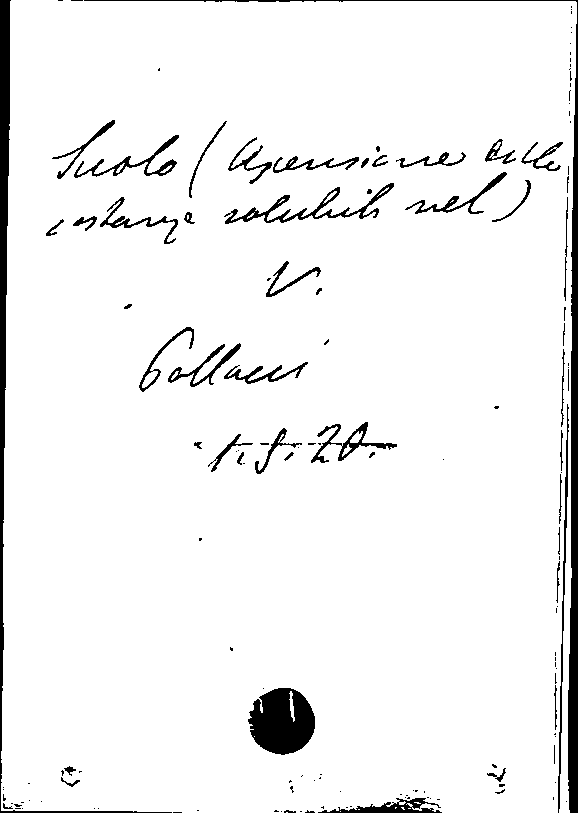 Suolo (Ascensione delle
sostanze solubili nel)
V.
Pollacci
1.9.20.